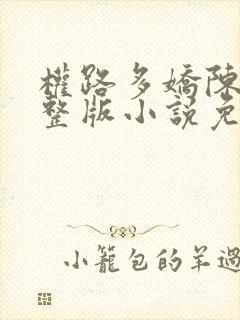 權路多嬌陳
整版小說免
小籠包的羊過